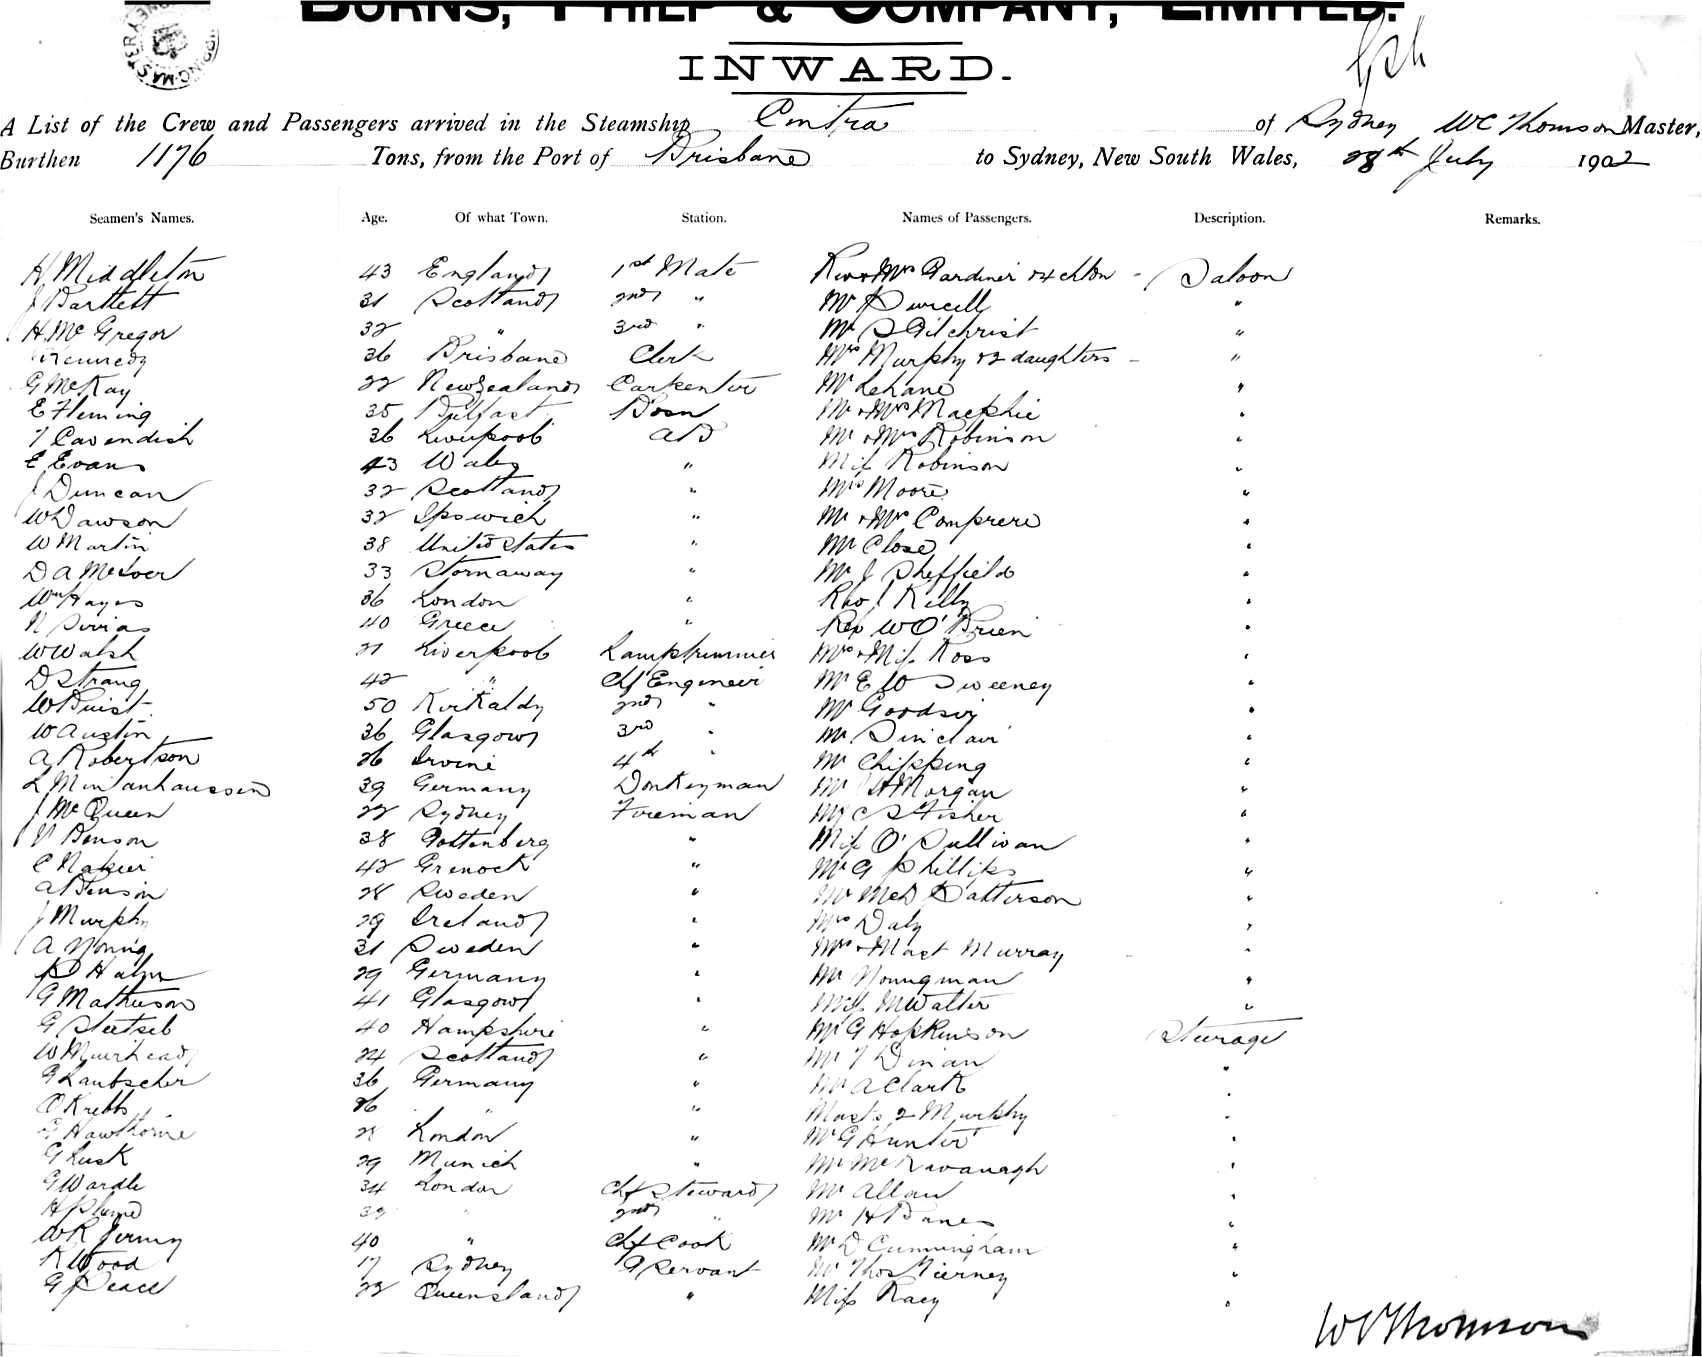 BURNS, PHILP & COMPANY, LIMITED.
INWARD.
A List of the Crew and Passengers arrived in the Steamship Cintra of Sydney WC Thomson Master,
Burthen 1176 Tons, from the Port of Brisbane to Sydney, New South Wales, 28th July 1902
Seamen's Names. Age. Of what Town. Station. Names of Passengers. Description. Remarks.
H Middleton 43 England 1st Mate Rev & Mrs Gardiner & 4 chton - Saloon
J Bartlett 31 Scotland 2nd " Mr Purcell "
H Mc Gregor 32 " 3rd " Mr S Gilchrist "
Kennedy 36 Brisbane Clerk Mrs Murphy & 2 daughters - "
G McKay 22 New Zealand Carpenter Mr Lehane "
E Fleming 35 Belfast Bosn Mr & Mrs Macphie "
T Cavendish 36 Liverpool AB Mr & Mrs Robinson "
E Evans 43 Wales " Miss Robinson "
J Duncan 32 Scotland " Mrs Moore "
W Dawson 32 Ipswich " Mr & Mrs Comprere "
W Martin 38 United States " Mr Close "
D A McIver 33 Stornaway " Mr J Sheffield "
Wm Hayes 36 London " Rev J Kelly "
N 40 Greece " Rev W O'Brien "
W Walsh 21 Liverpool Lamptrimmer Mrs & Miss Ross "
D Strang 42 " Chf Engineer Mr E W Sweeney "
W Buist 50 Kirkaldy 2nd " Mr Goodsir "
W Austin 36 Glasgow 3rd " Mr Sinclair "
A Robertson 26 Irvine 4th " Mr Chipping "
L Mintanhaussen 39 Germany Donkeyman Mr H Morgan "
J McQueen 22 Sydney Fireman Mr C S Fisher "
V Benson 38 Gottenberg " Miss O'Sullivan "
C Napier 42 Grenock " Mr G Phillips "
A Benson 28 Sweden " Mr McD Patterson "
J Murphy 29 Ireland " Mrs Daly "
A Young 31 Sweden " Mrs & Mast Murray "
P Hahn 29 Germany " Mr Youngman "
G Matheson 41 Glasgow " M Walter "
G 40 Hampshire " Mr G Hopkinson Steerage
W Muirhead 24 Scotland " Mr T Dinan "
G Laubscher 36 Germany " Mr A Clark "
O Krebbs 26 " " Masts 2 Murphy "
G Hawthorne 28 London " Mr G Hunter "
G Lusk 29 Munich " Mr Mc Kavanagh "
G Wardle 34 London Chf Steward Mr Allan "
H Plume 39 " 2nd " Mr H Banes "
W R Jermy 40 " Chf Cook Mr D Cunningham "
R Wood 17 Sydney G Servant Mr Thos Tierney "
G Peace 22 Queensland " Miss Racy "
WC Thomson